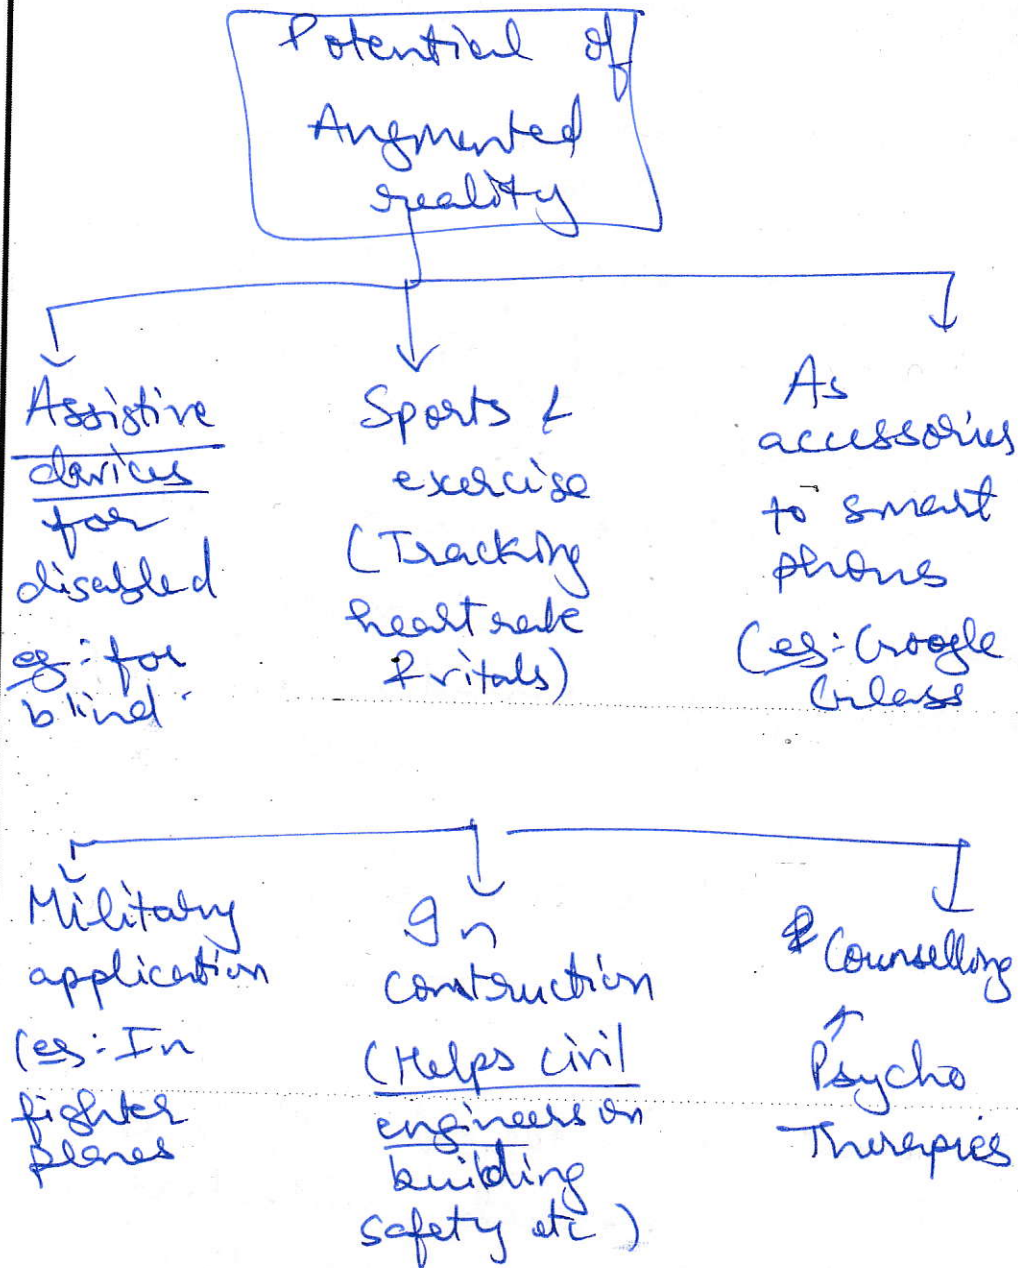 Potential of
Augmented
reality
Assistive
devices
for
disabled
eg: for
blind
Sports &
exercise
(Tracking
heart rate
& vitals)
As
accessories
to smart
phones
(eg: Google
Glass
Military
application
(eg: In
fighter
planes
In
construction
(Helps civil
engineers on
building
safety etc)
Counselling
Psycho
Therapies